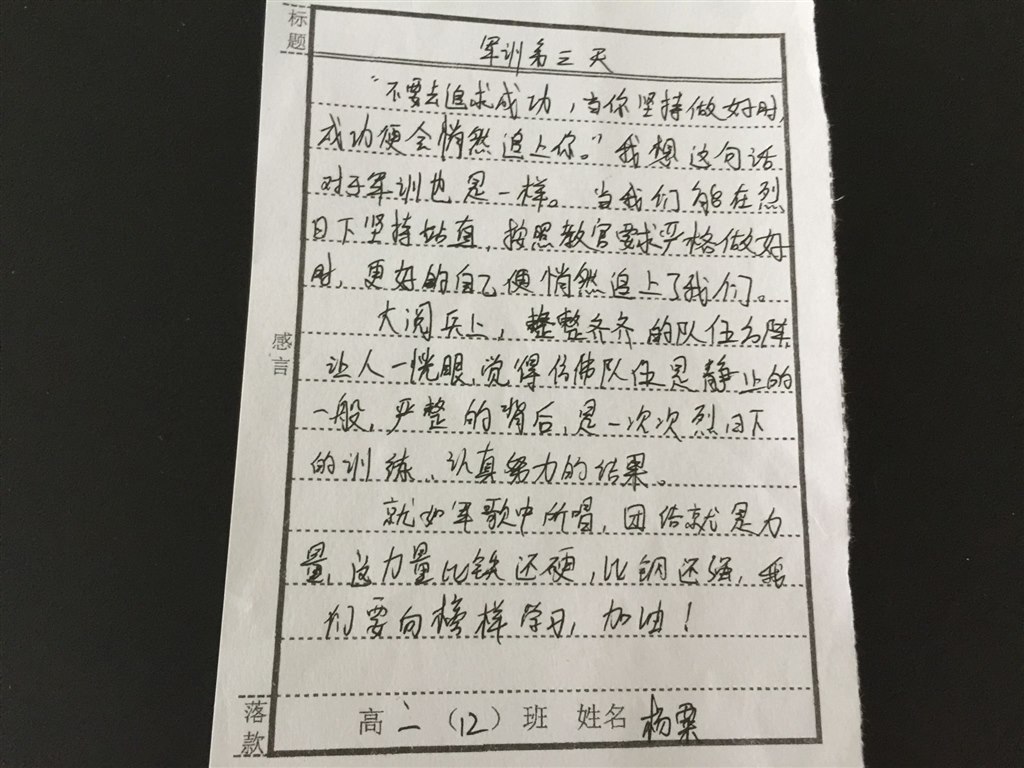 标题
军训第三天
“不要去追求成功，当你坚持做好时，
成功便会悄然追上你。”我想这句话
对于军训也是一样。当我们能在烈
日下坚持站直，按照教官要求严格做好
时，更好的自己便悄然追上了我们。
大阅兵上，整整齐齐的队伍方阵，
感言
让人一恍眼，觉得仿佛队伍是静止的
一般，严整的背后，是一次次烈日下
的训练、认真努力的结果。
就如军歌中所唱，团结就是力
量，这力量比铁还硬，比钢还强，我
们要向榜样学习，加油！
落款
高二（12）班 姓名 杨栗